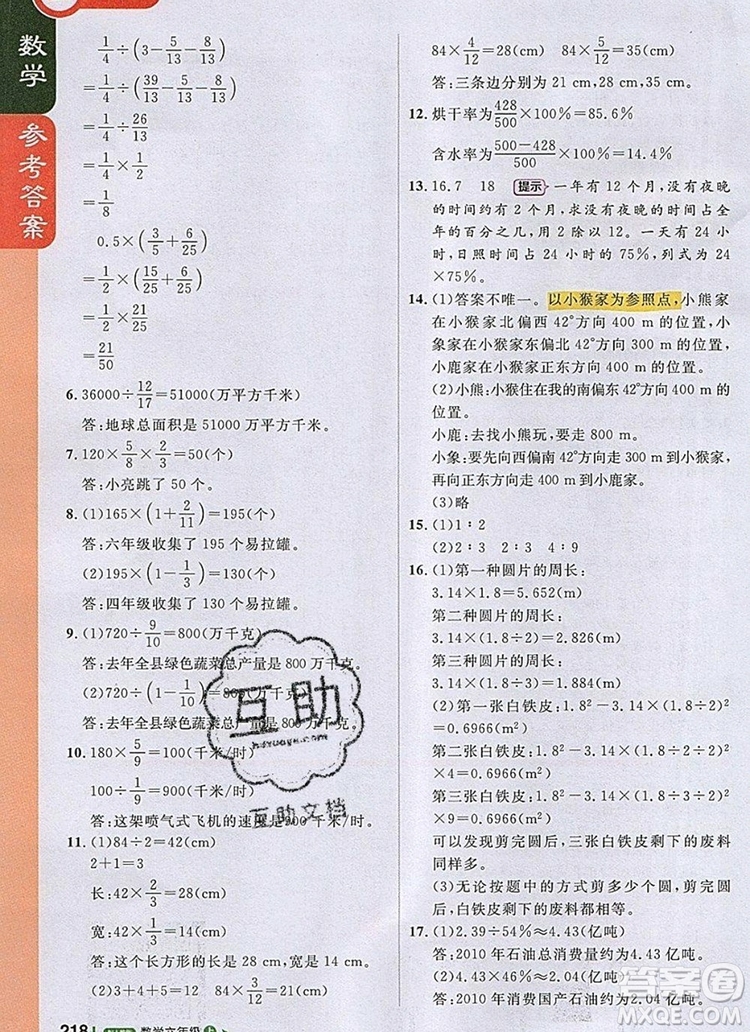 数学
参考答案
1/4÷(3-5/13-8/13)
=1/4÷(39/13-5/13-8/13)
=1/4÷26/13
=1/4×1/2
=1/8
0.5×(3/5+6/25)
=1/2×(15/25+6/25)
=1/2×21/25
=21/50
6. 36000÷12/17=51000(万平方千米)
答:地球总面积是 51000 万平方千米。
7. 120×5/8×2/3=50(个)
答:小亮跳了 50 个。
8. (1)165×(1+2/11)=195(个)
答:六年级收集了 195 个易拉罐。
(2)195×(1-1/3)=130(个)
答:四年级收集了 130 个易拉罐。
9. (1)720÷9/10=800(万千克)
答:去年全县绿色蔬菜总产量是 800 万千克。
(2)720÷(1-1/10)=800(万千克)
答:去年全县绿色蔬菜总产量是 800 万千克。
10. 180×5/9=100(千米/时)
100÷1/9=900(千米/时)
答:这架喷气式飞机的速度是900 千米/时。
11. (1)84÷2=42(cm)
2+1=3
长:42×2/3=28(cm)
宽:42×1/3=14(cm)
答:这个长方形的长是 28 cm,宽是 14 cm。
(2)3+4+5=12 84×3/12=21(cm)
218 数学六年级 上
84×4/12=28(cm) 84×5/12=35(cm)
答:三条边分别为 21 cm,28 cm,35 cm。
12. 烘干率为428/500×100%=85.6%
含水率为(500-428)/500×100%=14.4%
13. 16.7 18 提示 一年有 12 个月,没有夜晚
的时间约有 2 个月,求没有夜晚的时间占全
年的百分之几,用 2 除以 12。一天有 24 小
时,日照时间占 24 小时的 75%,列式为 24
×75%。
14. (1)答案不唯一。以小猴家为参照点,小熊家
在小猴家北偏西 42°方向 400 m 的位置,小
象家在小猴家东偏北 42°方向 300 m 的位置,
小鹿家在小猴家正东方向 400 m 的位置。
(2)小熊:小猴住在我的南偏东 42°方向 400 m
的位置。
小鹿:去找小熊玩,要走 800 m。
小象:要先向西偏南 42°方向走 300 m到小猴家,
再向正东方向走 400 m到小鹿家。
(3)略
15. (1)1∶2
(2)2∶3 2∶3 4∶9
16. (1)第一种圆片的周长:
3.14×1.8=5.652(m)
第二种圆片的周长:
3.14×(1.8÷2)=2.826(m)
第三种圆片的周长:
3.14×(1.8÷3)=1.884(m)
(2)第一张白铁皮:1.8²-3.14×(1.8÷2)²
=0.6966(m²)
第二张白铁皮:1.8²-3.14×(1.8÷2÷2)²
×4=0.6966(m²)
第三张白铁皮:1.8²-3.14×(1.8÷3÷2)²
×9=0.6966(m²)
可以发现剪完圆后,三张白铁皮剩下的废料
同样多。
(3)无论按题中的方式剪多少个圆,剪完圆
后,白铁皮剩下的废料都相等。
17. (1)2.39÷54%≈4.43(亿吨)
答:2010 年石油总消费量约为 4.43 亿吨。
(2)4.43×46%≈2.04(亿吨)
答:2010 年消费国产石油约为 2.04 亿吨。
互助
互助文档
答案圈